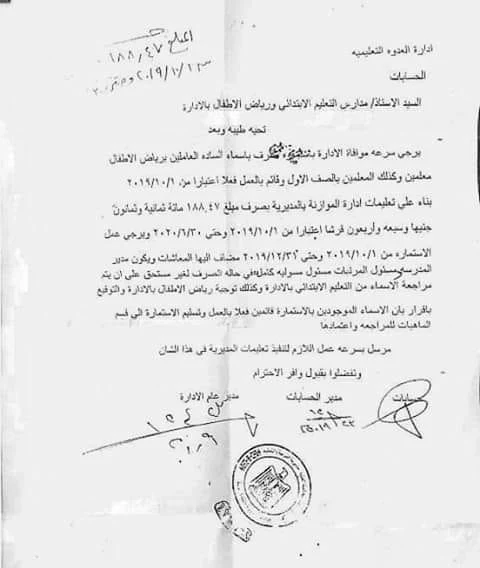 المبلغ
١٨٨,٤٧
ادارة العدوه التعليميه
الحسابات
السيد الاستاذ/ مدارس التعليم الابتدائي ورياض الاطفال بالادارة
تحيه طيبه وبعد
يرجي سرعه موافاة الادارة صرف باسماء الساده العاملين برياض الاطفال
معلمين وكذلك المعلمين بالصف الاول وقائم بالعمل فعلا اعتبارا من ٢٠١٩/١٠/١
بناء علي تعليمات ادارة الموازنة بالمديرية بصرف مبلغ ١٨٨,٤٧ مائة ثمانية وثمانون
جنيها وسبعه وأربعون قرشا اعتبارا من ٢٠١٩/١٠/١ وحتي ٢٠٢٠/٦/٣٠ ويرجي عمل
الاستماره من ٢٠١٩/١٠/١ وحتي ٢٠١٩/١٢/٣١ مضاف اليها المعاشات ويكون مدير
المدرسه ومسئول المرتبات مسئول مسوليه كامله في حاله الصرف لغير مستحق علي ان يتم
مراجعة الاسماء من التعليم الابتدائي بالادارة وكذلك توجية رياض الاطفال بالادارة والتوقيع
باقرار بان الاسماء الموجودين بالاستمارة قائمين فعلا بالعمل وتسليم الاستمارة الي قسم
الماهيات للمراجعه واعتمادها
مرسل بسرعه عمل اللازم لتنفيذ تعليمات المديرية في هذا الشان
وتفضلوا بقبول وافر الاحترام
حسابات مدير الحسابات مدير عام الادارة